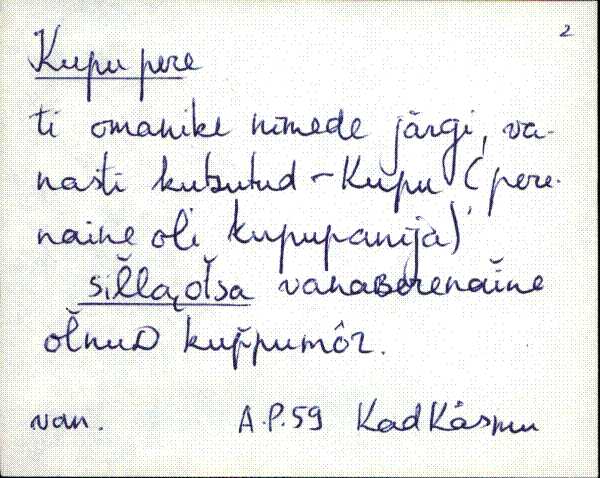 2
Kupu pere
ti omanike nimede järgi, va-
nasti kutsutud - Kupu (pere-
naine oli kupupanija)
silla otsa vanaberenaine
olnuD kuppumôr.
van. A.P.59 Kad Käsmu